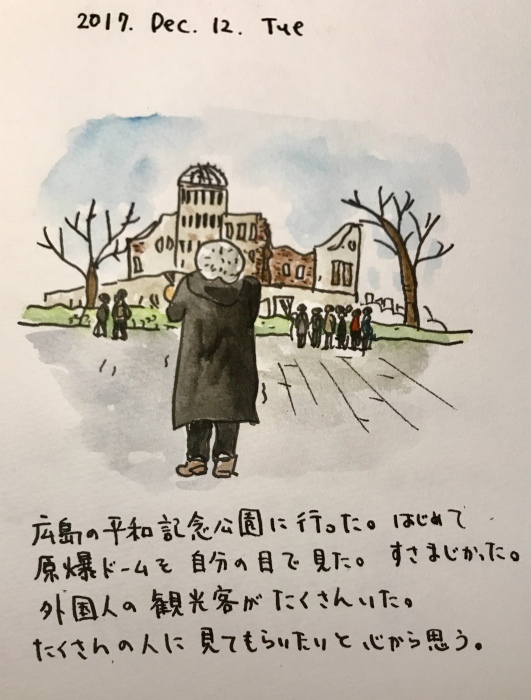 2017. Dec. 12. Tue
広島の平和記念公園に行った。はじめて
原爆ドームを自分の目で見た。すさまじかった。
外国人の観光客がたくさんいた。
たくさんの人に見てもらいたいと心から思う。